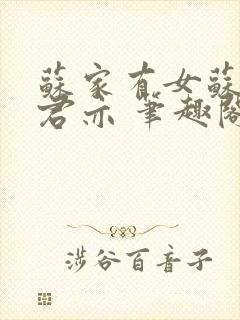 蘇家有女蘇
君亦 筆趣閣
涉谷百音子